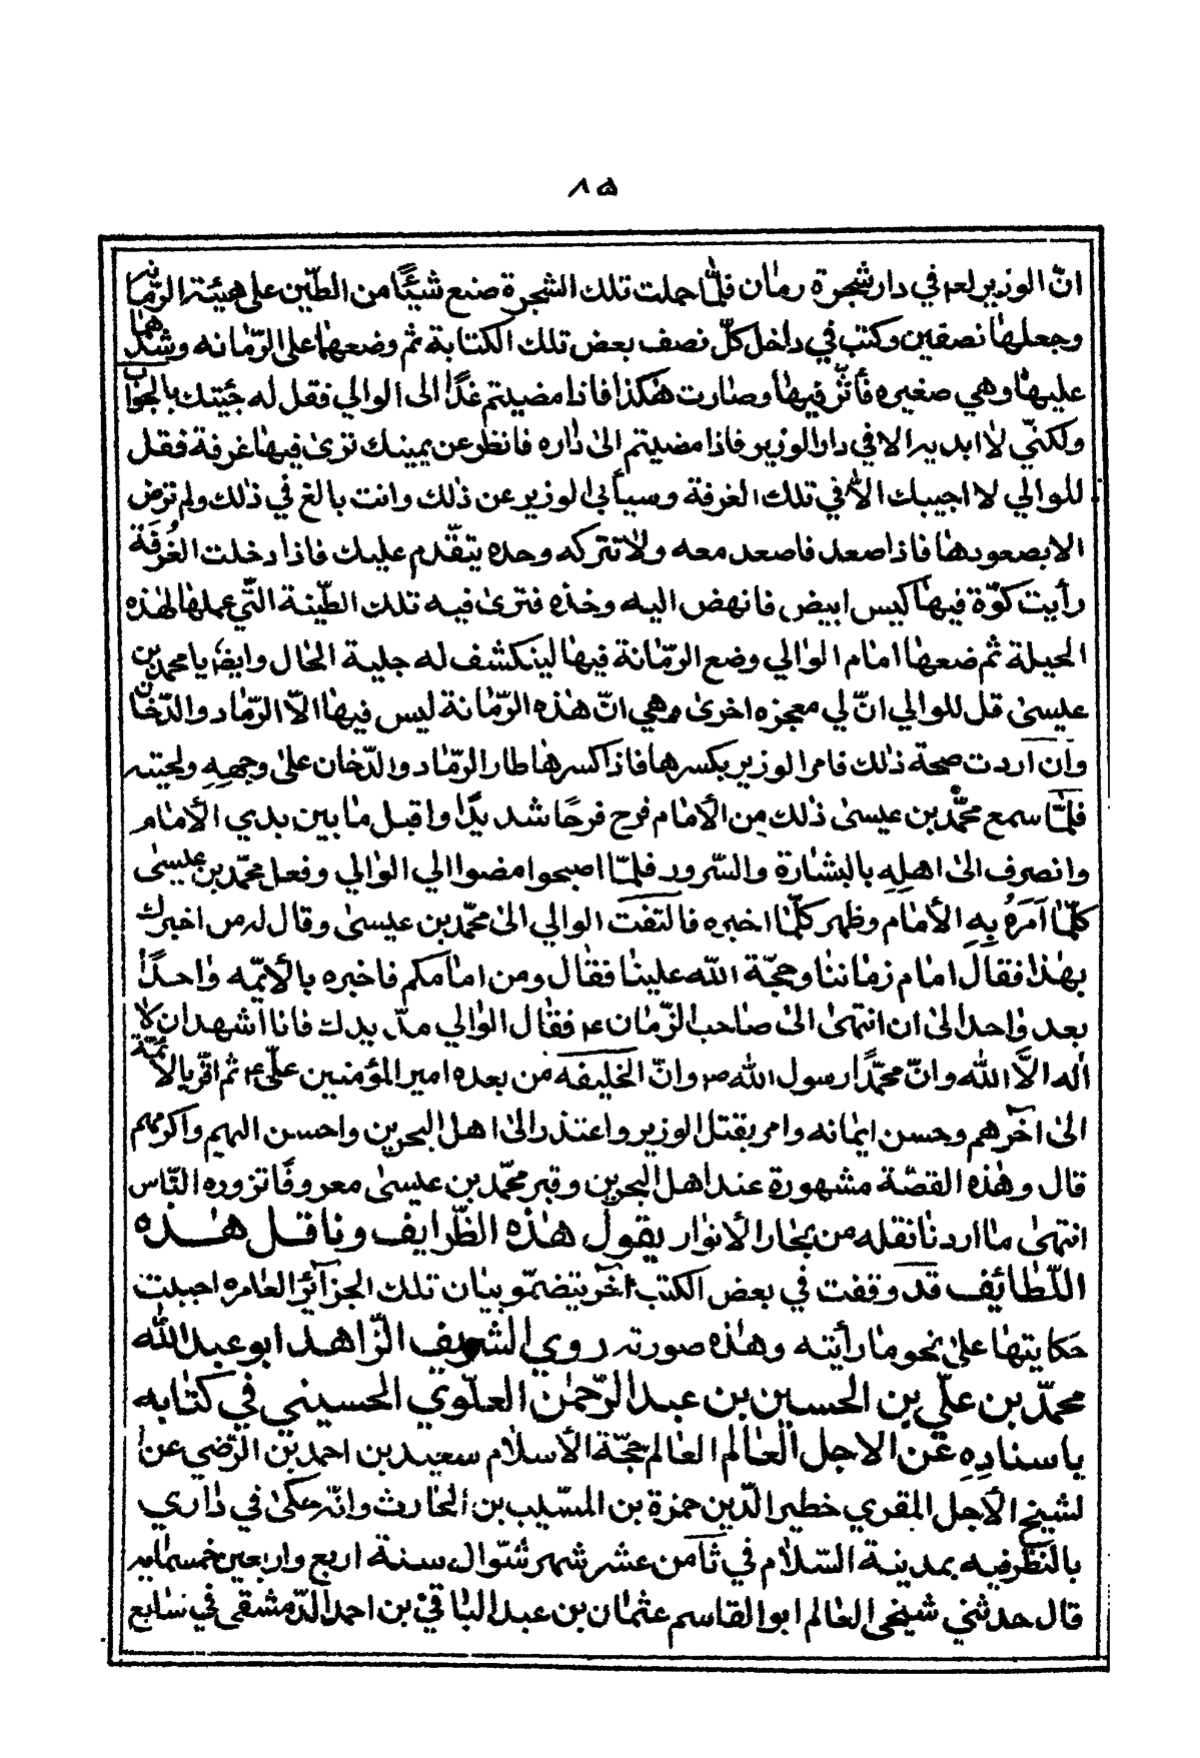 ٨٥
انّ الوزير لعـ في دار شجرة رمان فلمّا حملت تلك الشجرة صنع شيئًا من الطّين على هيئة الرّمّانة
وجعلهٰا نصفين وكتب في داخل كلّ نصف بعض تلك الكتابة ثم وضعهٰا على الرّمّانه وشدّهمٰا
عليهٰا وهي صغيره فأثّر فيهٰا وصٰارت هٰكذا فاذا مضيتم غدًا الى الوالي فقل له جئتك بالجوٰاب
ولكنّي لٰا ابديه الا في دار الوزير فاذا مضيتم الىٰ دٰاره فانظر عن يمينك ترىٰ فيهٰا غرفة فقل
للوالي لا اجيبك الّا في تلك الغرفة وسيأبى الوزير عن ذٰلك وانت بالغ في ذٰلك ولم ترض
الا بصعودهٰا فاذا صعد فاصعد معه ولٰا تتركه وحده يتقّدم عليك فاذا دخلت الغُرفَة
رأيت كوّة فيهٰا كيس ابيض فانهض اليه وخذه فترىٰ فيه تلك الطّينة الّتي عملهٰا لهٰذه
الحيلة ثم ضعهٰا امٰام الوٰالي وضع الرّمّانة فيهٰا لينكشف له جلية الحٰال وايضا يا محمد بن
عيسىٰ قل للوالي انّ لي معجزه اخرىٰ وهي انّ هٰذه الرّمّانة ليس فيهٰا الّا الرّمٰاد والدّخٰان
وان اردت صحة ذٰلك فامر الوزير بكسرهٰا فاذا كسرهٰا طار الرّمٰاد والدّخان علىٰ وجهِهِ ولحيته
فلمّٰا سمع محمّد بن عيسىٰ ذٰلك مِن الأمٰام فرح فرحًا شديدًا واقبل مٰا بين يدي الأمٰام
وانصرف الىٰ اهلِهِ بالبشٰارة والسّرور فلمّٰا اصبحوا مضوا الي الوٰالي وفعل محمّد بن عيسىٰ
كلّمٰا اَمَرَهُ بِهِ الأمٰام وظهر كلّمٰا اخبره فالتفت الوالي الىٰ محمّد بن عيسىٰ وقال له من اخبرك
بهٰذا فقال امٰام زمٰاننٰا وحجّة اللّه علينٰا فقٰال ومن امٰامكم فاخبره بالأئمّه وٰاحدًا
بعد وٰاحد الىٰ ان انتهىٰ الىٰ صٰاحب الزّمٰان ع فقٰال الوٰالي مدّ يدك فانا اشهد ان لٰا
أله الّا اللّه وانّ محمّدًا رسول اللّه ص وانّ الخليفه من بعده امير المؤمنين علّي ع ثم اقرّ بالأئمّة
الىٰ اخرهم وحسن ايمٰانه وامر بقتل الوزير واعتذر الىٰ اهل البحرين واحسن اليهم واكرمهم
قال وهٰذه القصّة مشهورة عند اهل البحرين وقبر محمّد بن عيسىٰ معروفًا تزوره النّاس
انتهىٰ مٰا اردنٰا نقله من بحٰار الأنوٰار يقول هٰذه الظّرايف وناقل هٰذه
اللّطٰائف قد وقفت في بعض الكتب اخر يتضمّن بيٰان تلك الجزآئر العٰامره احببت
حكايتهٰا علىٰ نحو مٰا رأيته وهٰذه صورته روي الشريف الزّاهد ابو عبد اللّه
محمّد بن علّي بن الحسين بن عبد الرّحمٰن العلّوي الحسيني في كتٰابه
باسنادِهِ عن الاجل العٰالم العٰالم حجّة الأسلٰام سعيد بن احمد بن الرّضي عن
لشيخ الأجل المقري خطير الدّين حمزة بن المسّيب بن الحٰارث وانّه حكىٰ في دٰاري
بالنّظرفيه بمدينة السّلٰام في ثٰامن عشر شهر شوّال سنة اربع واربعين خمسمٰايه
قال حدثني شيخي العٰالم ابو القاسم عثمٰان بن عبد البٰاقي بن احمد الدّمشقي في سٰابع